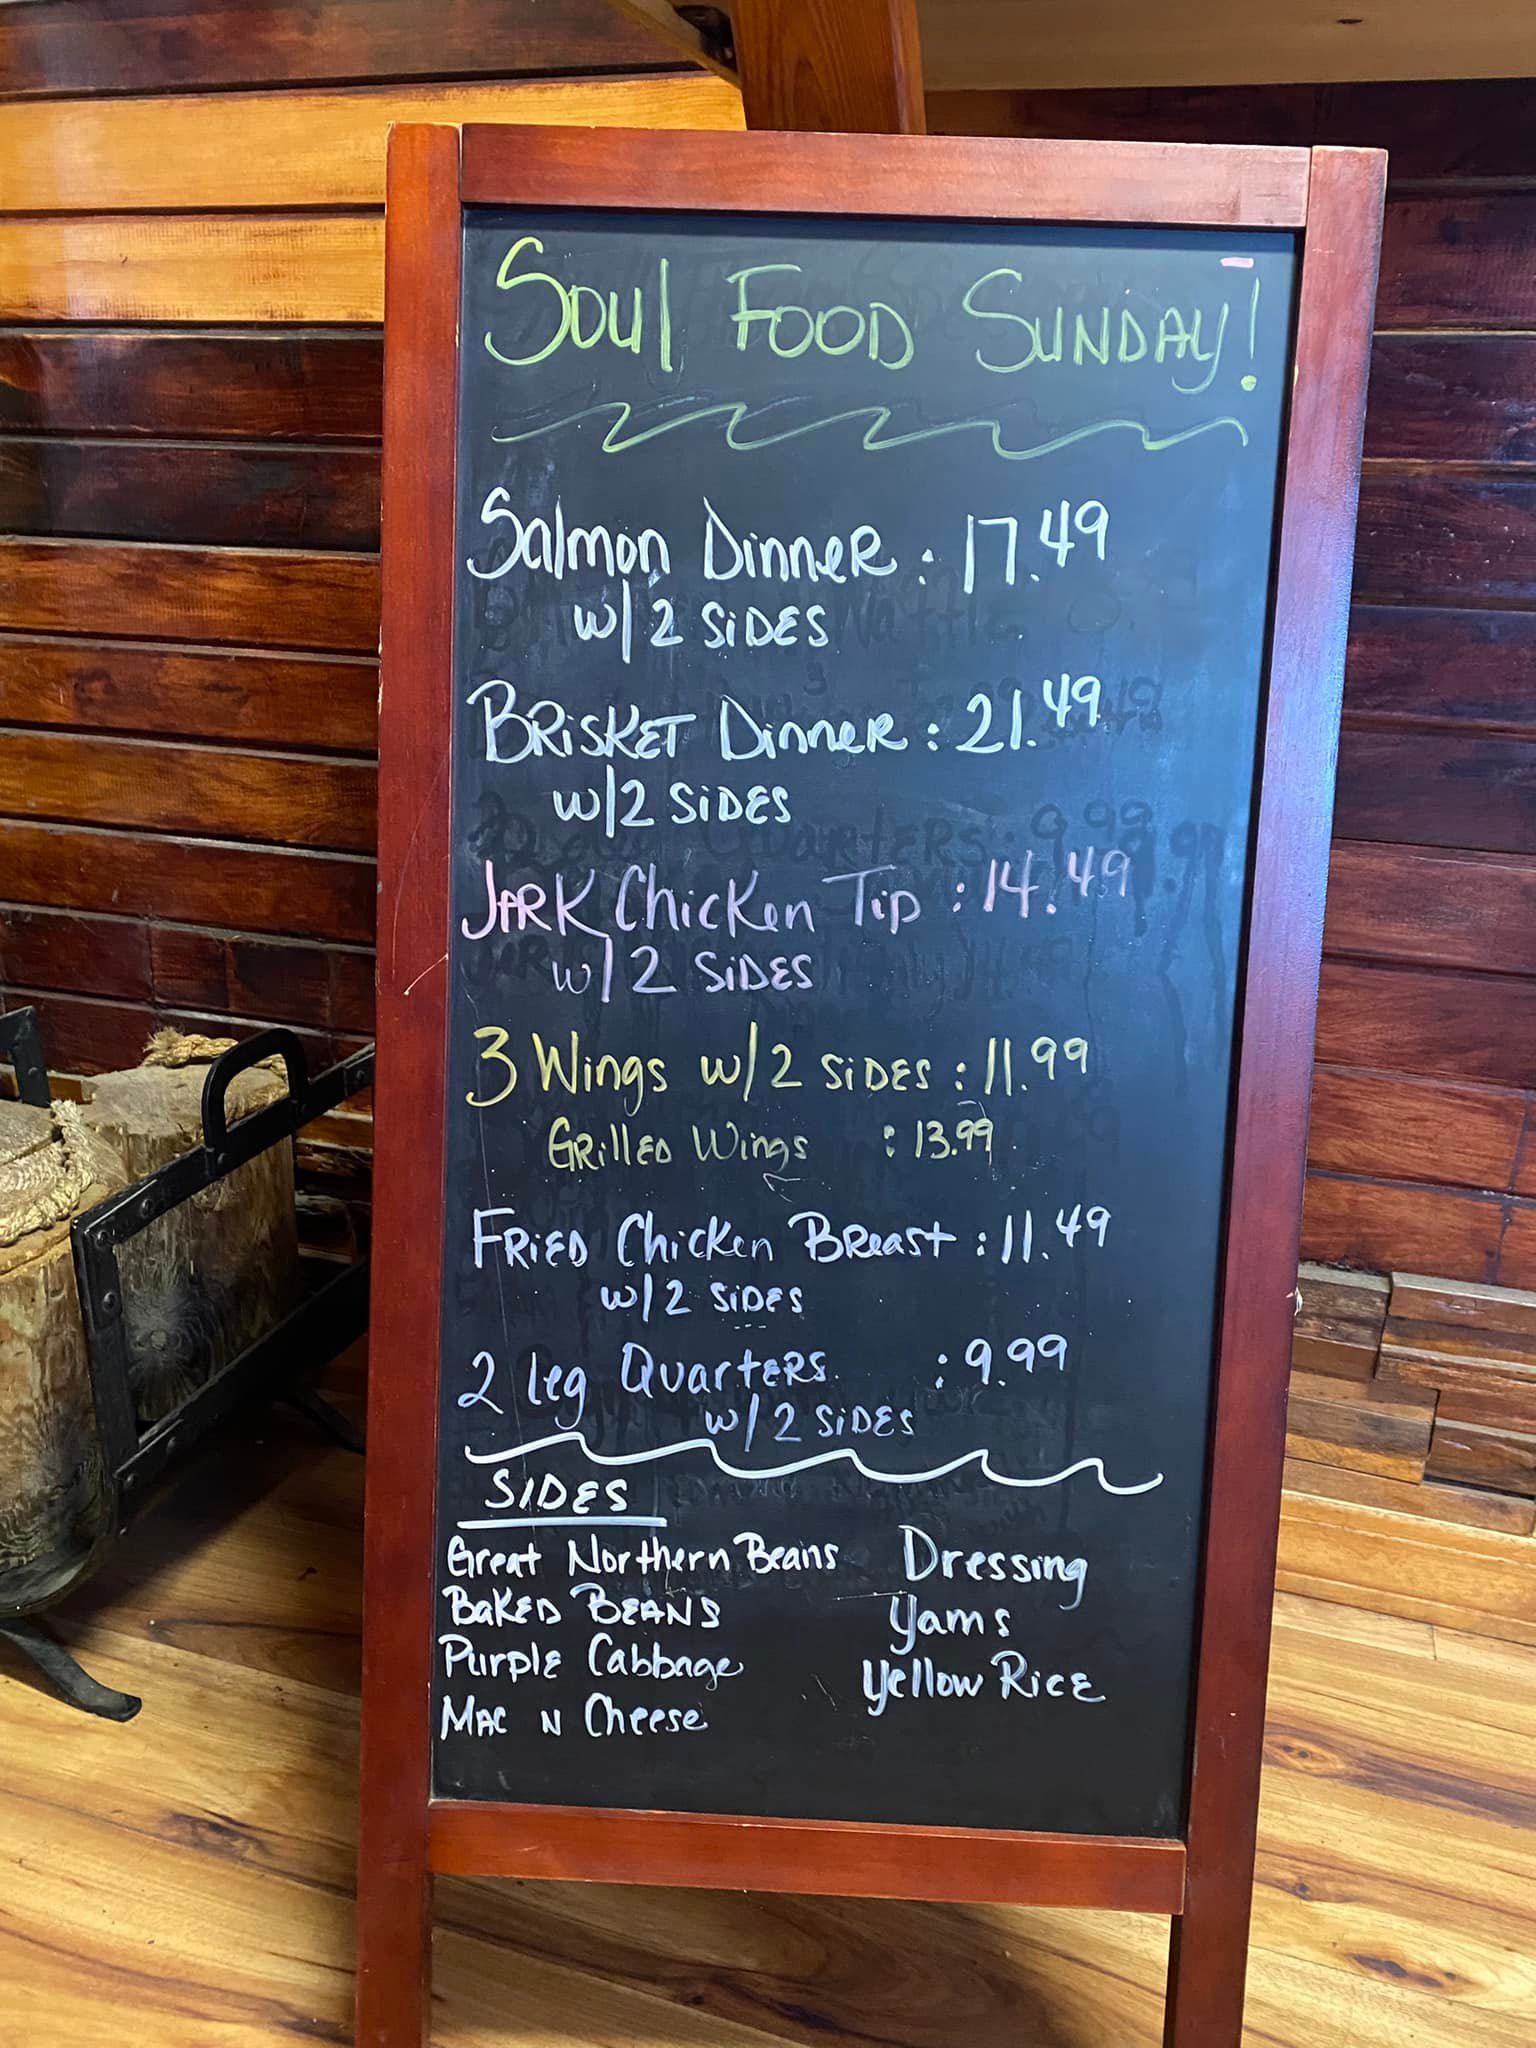 Soul Food Sunday!
Salmon Dinner : 17.49
w/ 2 Sides
Brisket Dinner : 21.49
w/ 2 Sides
Jark Chicken Tip : 14.49
w/ 2 Sides
3 Wings w/ 2 Sides : 11.99
Grilled Wings : 13.99
Fried Chicken Breast : 11.49
w/ 2 Sides
2 Leg Quarters : 9.99
w/ 2 Sides
SIDES
Great Northern Beans
Baked Beans
Purple Cabbage
Mac N Cheese
Dressing
Yams
Yellow Rice